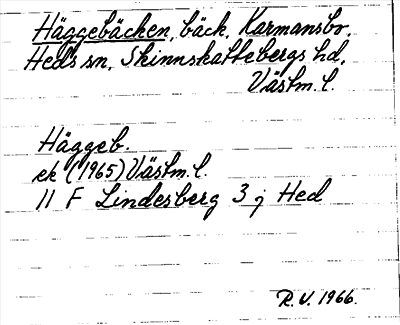 Häggebäcken, bäck, Karmansbo,
Heds sn, Skinnskattebergs hd,
Västm. l.
Häggeb.
ek (1965) Västm. l.
11 F Lindesberg 3 j Hed
R.V. 1966.